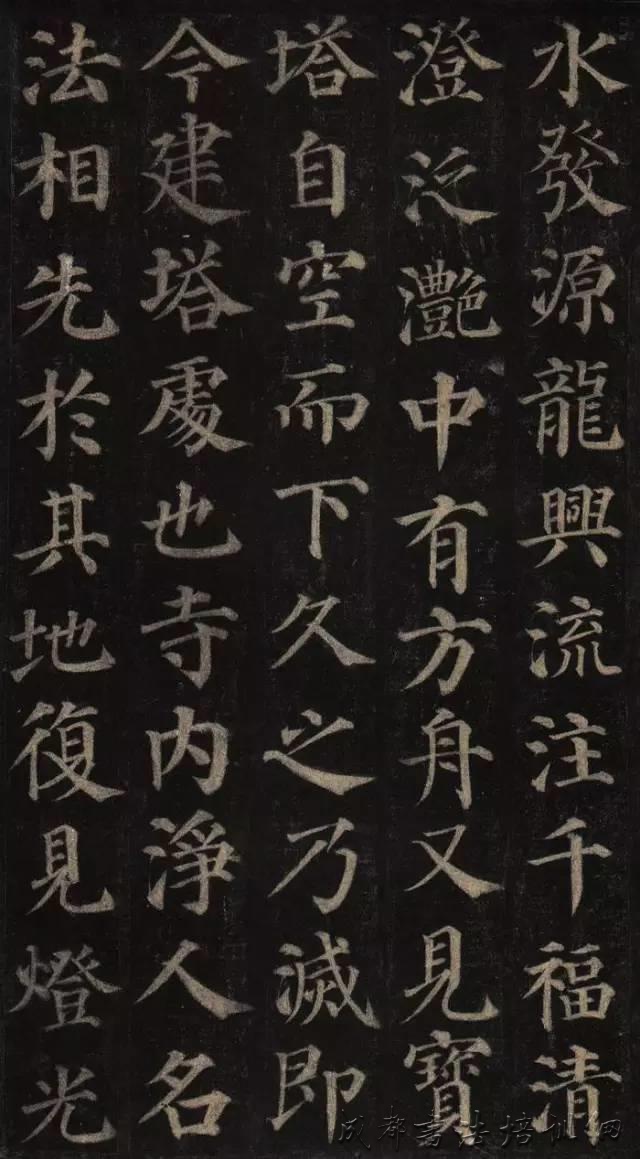 水發源龍興流注千福清
澄泛灧中有方舟又見寶
塔自空而下久之乃滅即
今建塔處也寺内淨人名
法相先於其地復見燈光
成都书法培训网